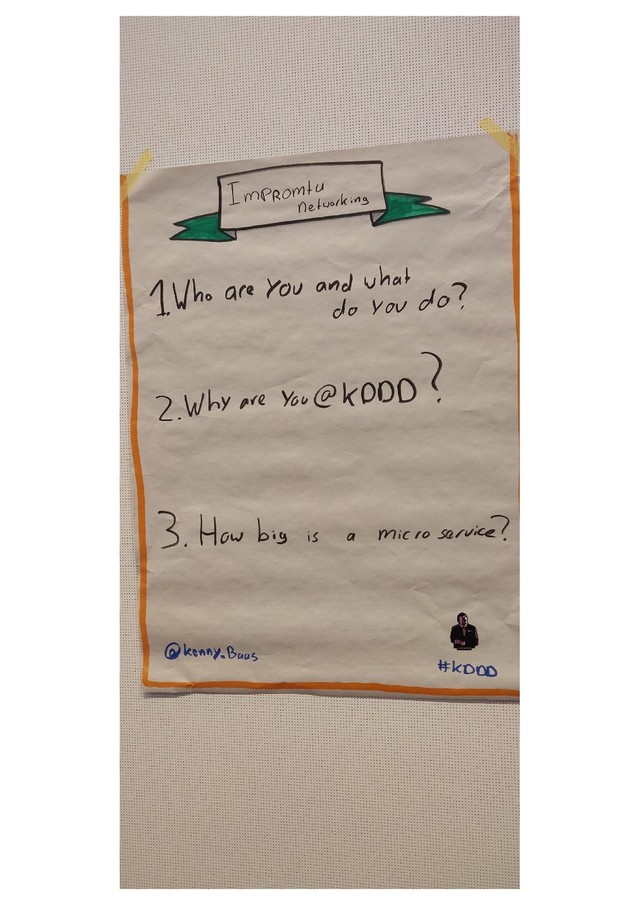 Impromtu
networking
1. Who are you and what
do you do?
2. Why are you @ KDDD?
3. How big is a micro service?
@kenny_Baas
#KDDD